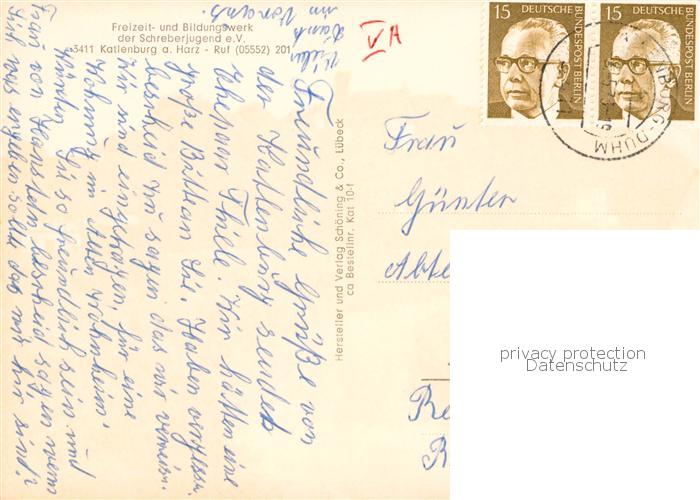 Freizeit- und Bildungswerk
der Schreberjugend e.V.
3411 Katlenburg a. Harz - Ruf (05552) 201
VA
15 DEUTSCHE BUNDESPOST BERLIN
15 DEUTSCHE BUNDESPOST BERLIN
BURG-DUHM
Freundliche Grüße von
der Kattenburg sendet
Ehepaar Thiele. Wir hätten eine
große Bitte an Sie. Haben vergessen
bescheid zu sagen das wir verreisen.
Wir sind eingetragen, für eine
Wohnung im Alten Wohnheim.
Würden Sie so freundlich sein und
Frau von Hanstein bescheid sagen wenn
sich was ergeben sollte das wir hir sind.
Vielen
Dank
im Voraus.
Hersteller und Verlag Schöning & Co., Lübeck
ca Bestellnr. Kat 10-f
Frau
Günter
Abte
privacy protection
Datenschutz